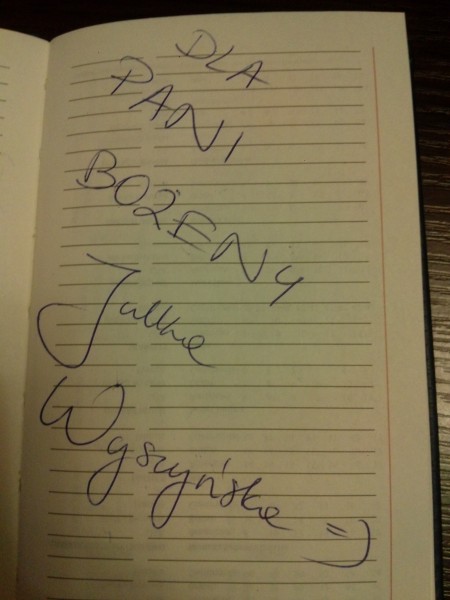 DLA
PANI
BOŻENY
Julka
Wyszyńska =)